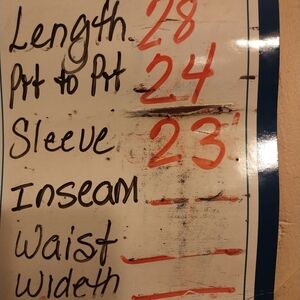 Length 28
Pit to Pit 24
Sleeve 23
Inseam —
Waist —
Wideth —